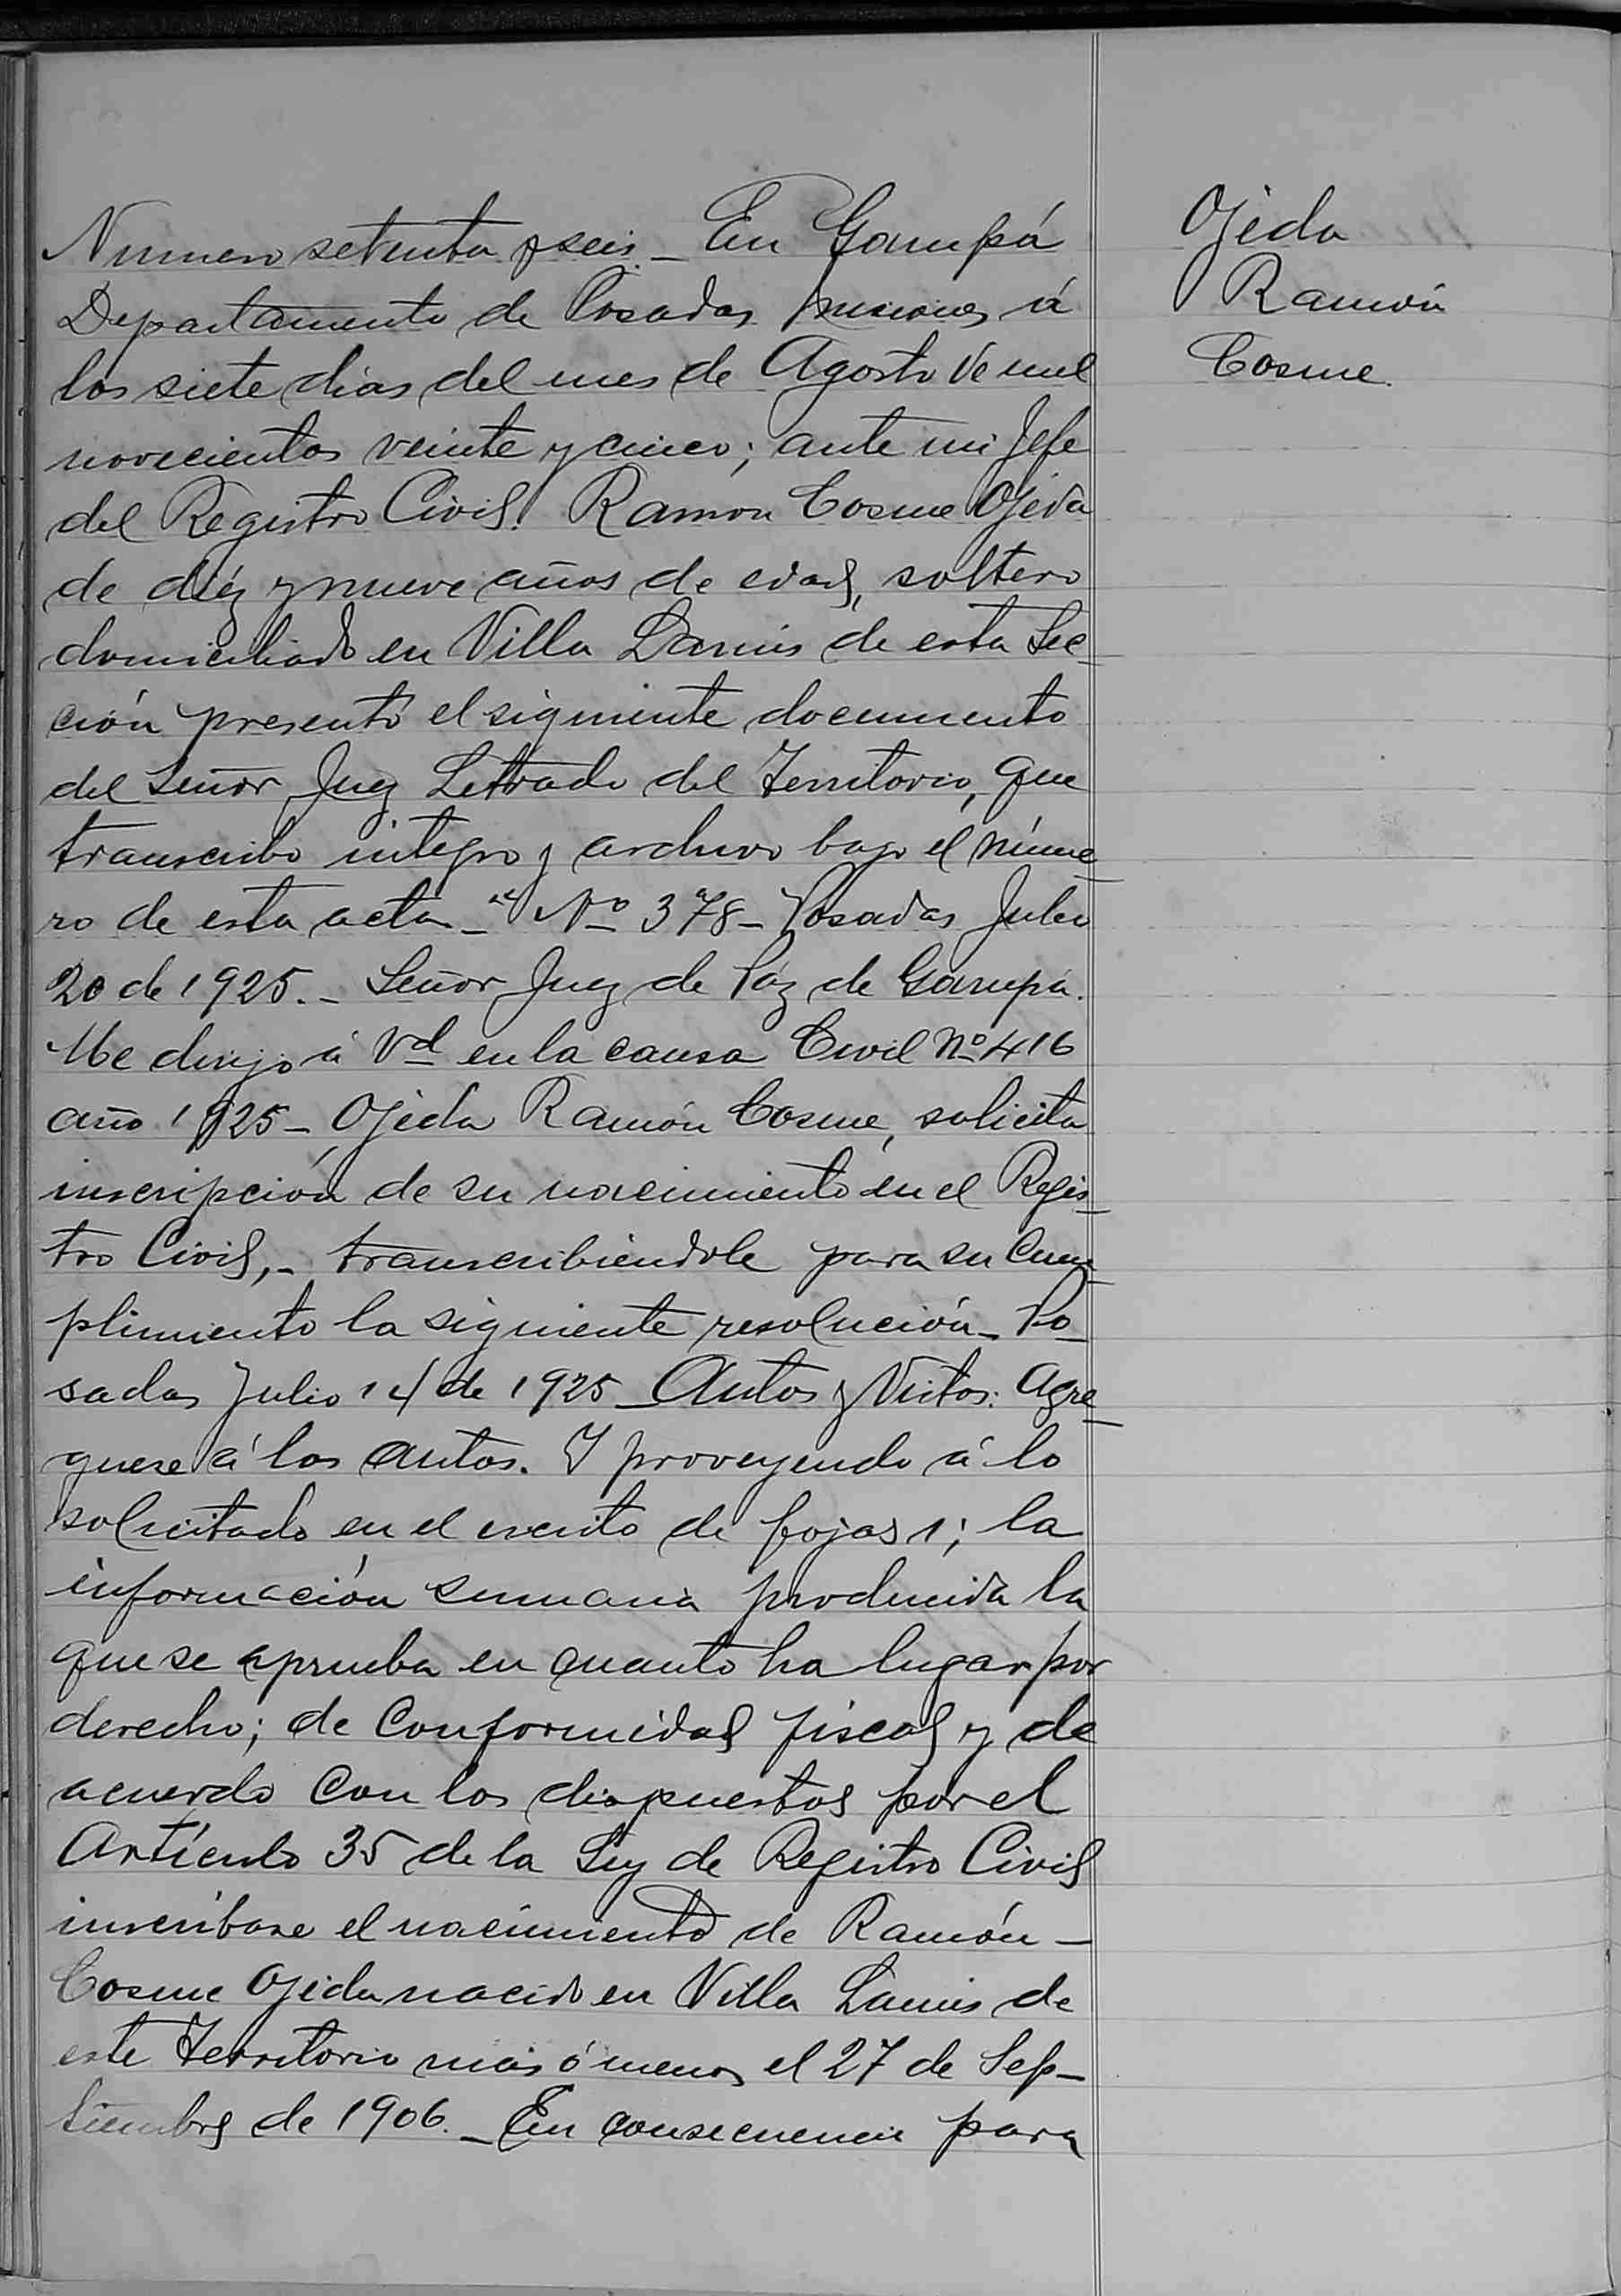 Numero setenta y seis_ En Garupá
Departamento de Posadas Misiones á
los siete dias del mes de Agosto de mil
novecientos veinte y cinco; ante mi Jefe
del Registro Civil. Ramon Cosme Ojeda
de diéz y nueve años de edad, soltero
domiciliado en Villa Lanús de esta Sec_
ción presentó el siguiente documento
del Señor Juez Letrado del Territorio, que
transcribo integro y archivo bajo el núme_
ro de esta acta_ "Nº 378_ Posadas Julio
20 de 1925._ Señor Juez de Páz de Garupá.
Me dirijo á Vd en la causa Civil Nº 416
año 1925_ Ojeda Ramón Cosme, solicita
inscripción de su nacimiento en el Regis_
tro Civil,_ transcribiendole para su cum_
plimiento la siguiente resolución_ Po_
sadas Julio 14 de 1925_ Autos y Vistos: Agre_
guese á los autos. Y proveyendo á lo
solicitado en el escrito de fojas 1; la
información sumaria producida la
que se aprueba en cuanto ha lugar por
derecho; de conformidad fiscal y de
acuerdo con los dispuestos por el
Artículo 35 de la Ley de Registro Civil
inscríbase el nacimiento de Ramón_
Cosme Ojeda nacido en Villa Lanús de
este Territorio más ó menos el 27 de Sep_
tiembre de 1906._ En consecuencia para
Ojeda
Ramón
Cosme.